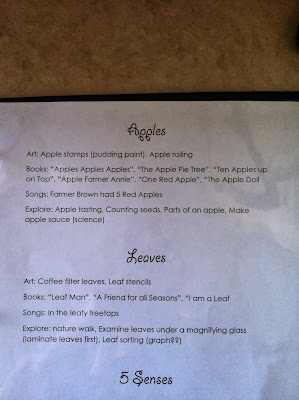 Apples
Art: Apple stamps (pudding paint), Apple rolling
Books: "Apples Apples Apples", "The Apple Pie Tree", "Ten Apples up
on Top", "Apple Farmer Annie", "One Red Apple", "The Apple Doll
Songs: Farmer Brown had 5 Red Apples
Explore: Apple tasting, Counting seeds, Parts of an apple, Make
apple sauce (science)
Leaves
Art: Coffee filter leaves, Leaf stencils
Books: "Leaf Man", "A Friend for all Seasons", "I am a Leaf
Songs: In the leafy treetops
Explore: nature walk, Examine leaves under a magnifying glass
(laminate leaves first), Leaf sorting (graph??)
5 Senses